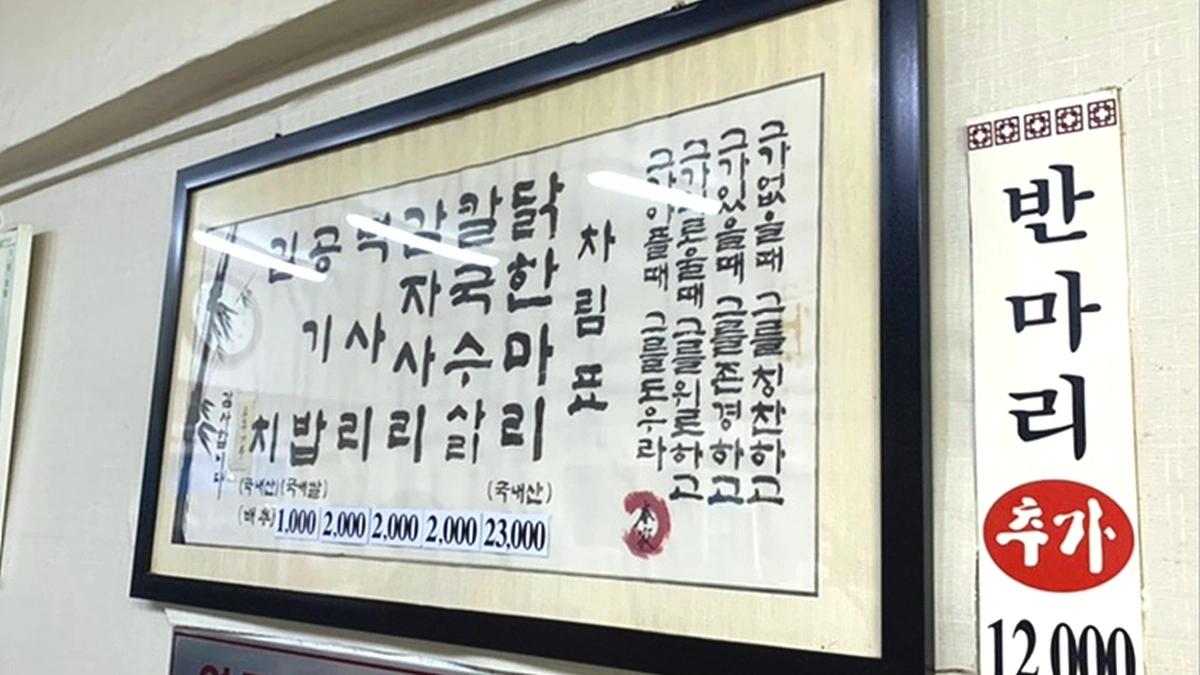 그가없을때 그를칭찬하고
그가있을때 그를존경하고
그가외로울때 그를위로하고
그가아플때 그를도우라
차림표
닭한마리
(국내산)
23,000
칼국수삶
2,000
감자사리
2,000
떡사리
2,000
공기밥
(국내쌀)
1,000
김치
(국내산)
(배추)
감사합니다
반마리
추가
12,000